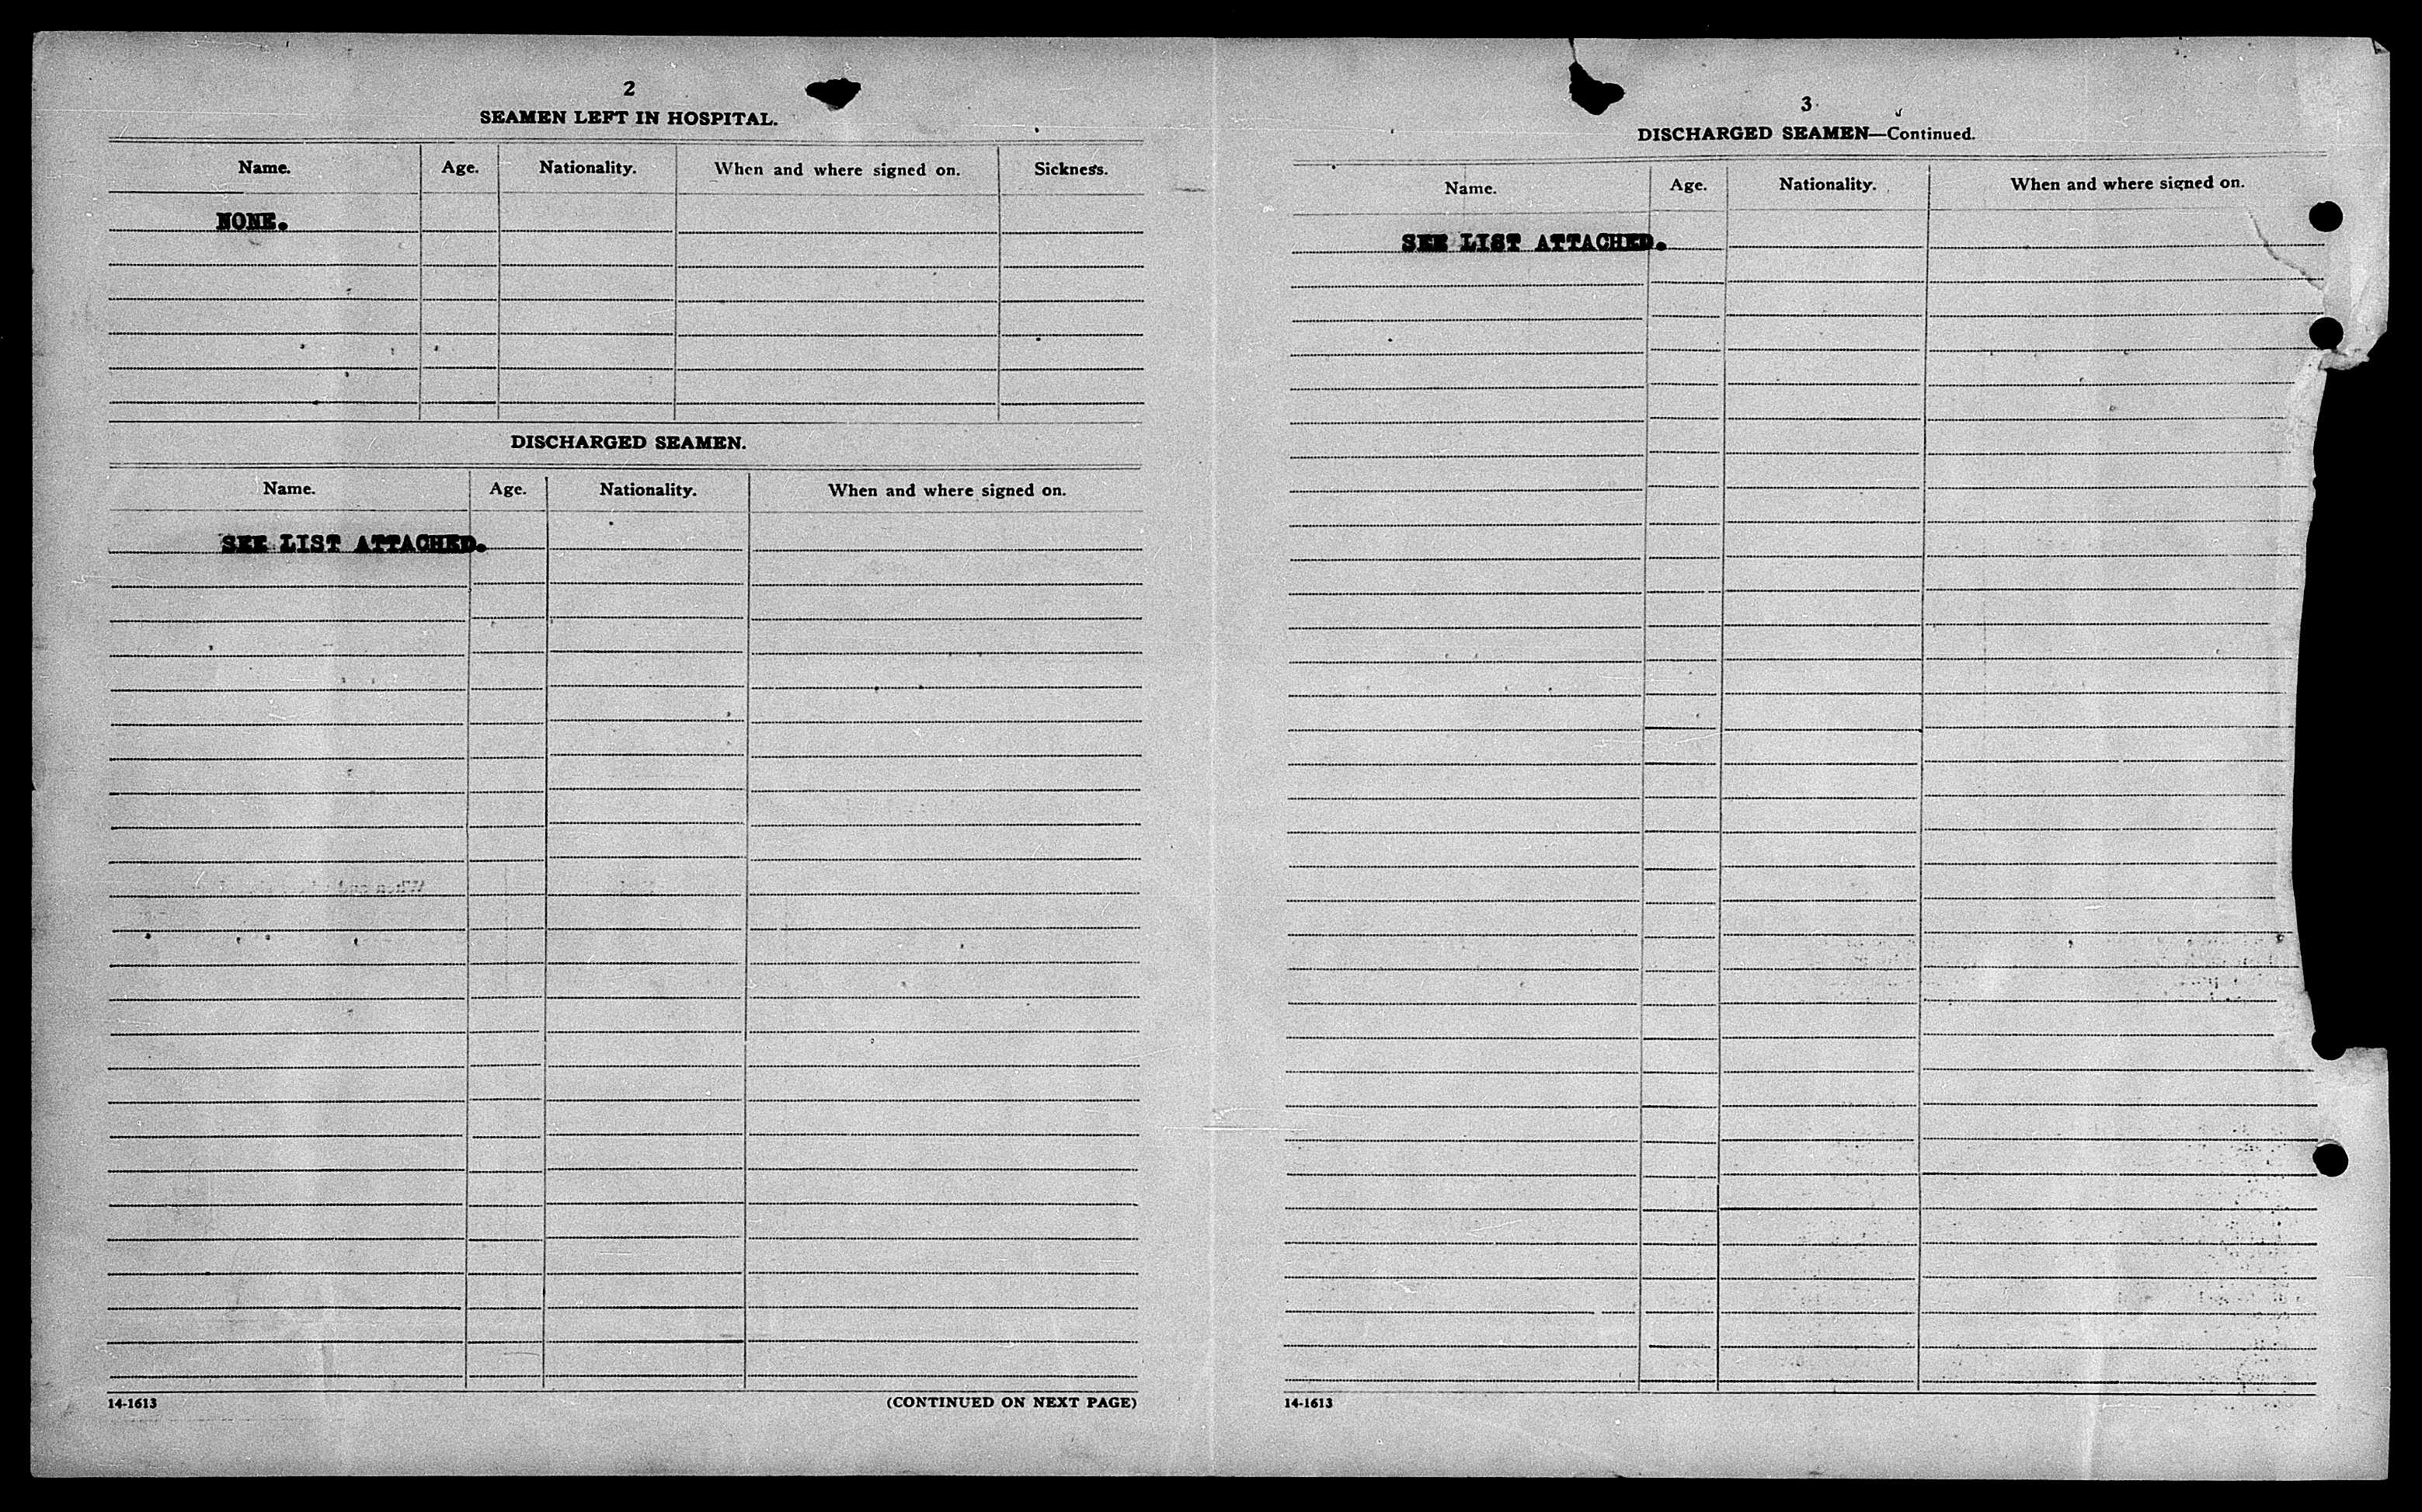 2
SEAMEN LEFT IN HOSPITAL.
Name. Age. Nationality. When and where signed on. Sickness.
NONE.
DISCHARGED SEAMEN.
Name. Age. Nationality. When and where signed on.
SEE LIST ATTACHED.
14-1613 (CONTINUED ON NEXT PAGE)
3
DISCHARGED SEAMEN—Continued.
Name. Age. Nationality. When and where signed on.
SEE LIST ATTACHED.
14-1613